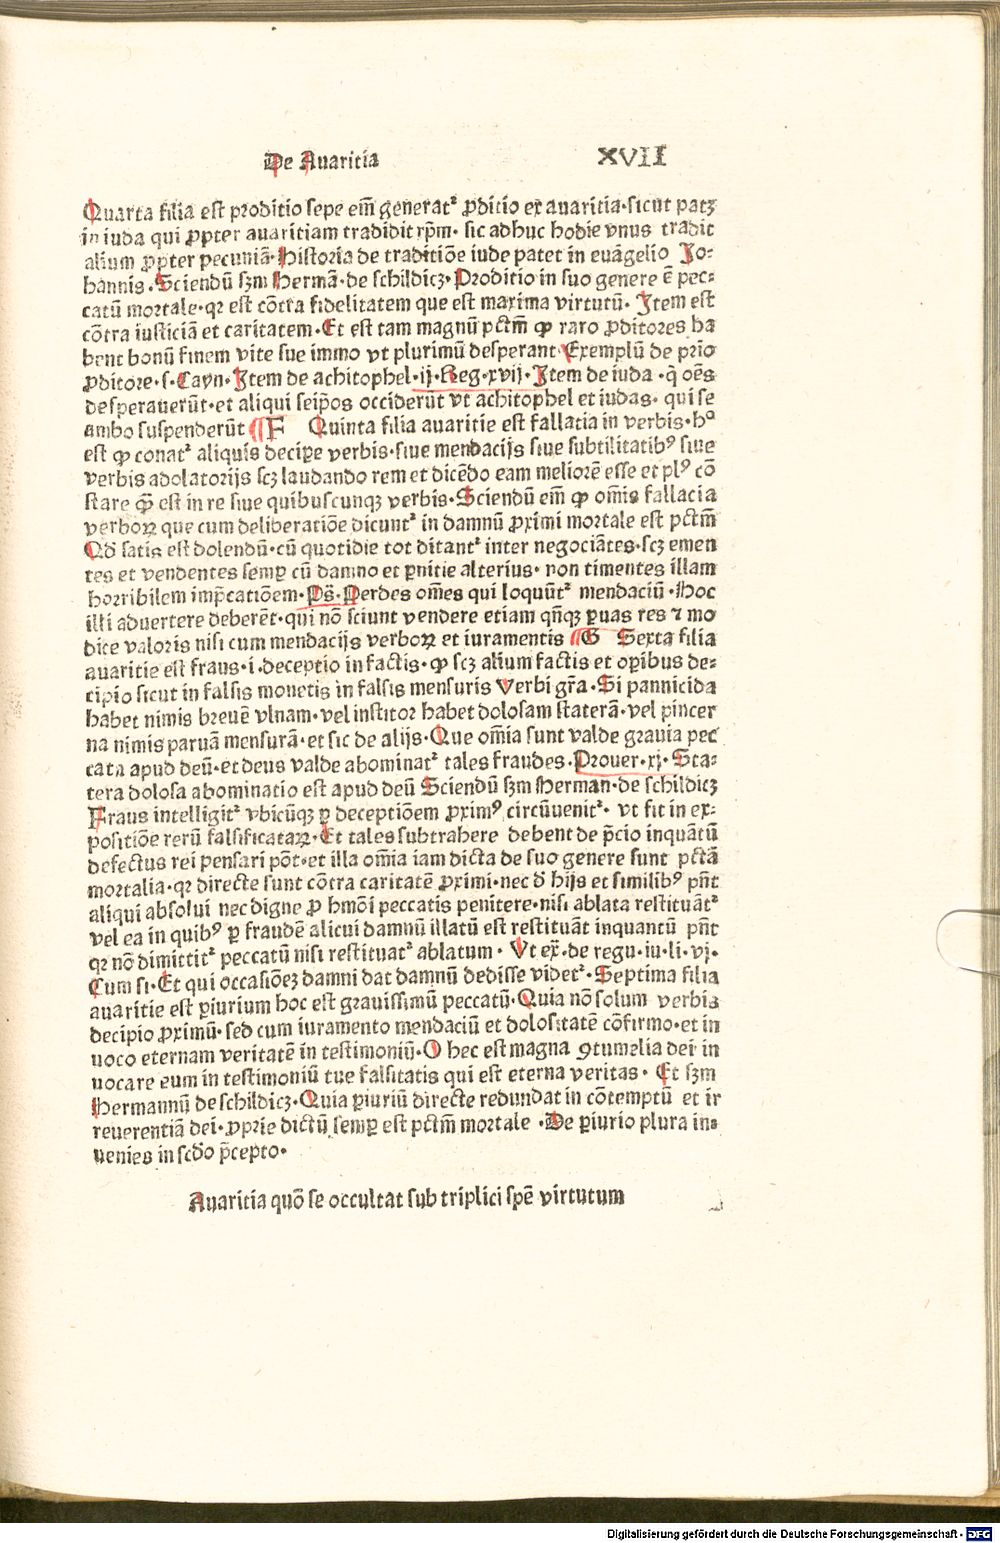 De Auaritia XVII
Quarta filia est proditio sepe em̄ generat᷑ ꝓditio ex auaritia·sicut patꝫ
in iuda qui ꝓpter auaritiam tradidit xp̄m· sic adhuc hodie vnus tradit
alium ꝓpter pecuniā· Historia de traditiōe iude patet in euāgelio Jo⸗
hannis·Sciendū sꝫm Hermā·de schildicz·Proditio in suo genere ē pec⸗
catū mortale·qꝛ est cōtra fidelitatem que est maxima virtutū· Item est
cōtra iusticiā et caritatem·Et est tam magnū pctm̄ ꝙ raro ꝓditores ha
bent bonū finem vite sue immo vt plurimū desperant·Exemplū de prīo
ꝓditore·s·Cayn·Item de achitophel·ij·Reg·xvij·Item de iuda ·q̄ oēs
desperauerūt·et aliqui seip̄os occiderūt vt achitophel et iudas· qui se
ambo suspenderūt ¶F Quinta filia auaritie est fallatia in verbis·hᵃ
est ꝙ conat᷑ aliquis decipe verbis·siue mendacijs siue subtilitatibꝰ siue
verbis adolatorijs scꝫ laudando rem et dicēdo eam meliorē esse et plꝰ cō
stare ꝙ̄ est in re siue quibuscunqꝫ verbis·Sciendū em̄ ꝙ om̄is fallacia
verboꝝ que cum deliberatiōe dicunt᷑ in damnū ꝓximi mortale est pctm̄
Qđ satis est dolendū·cū quotidie tot ditant᷑ inter negociātes·scꝫ emen
tes et vendentes semꝑ cū damno et ꝑnitie alterius· non timentes illam
horribilem imp̄catiōem·Ps̄·Perdes om̄es qui loquūt᷑ mendaciū·Hoc
illi aduertere deberēt·qui nō sciunt vendere etiam qn̄qꝫ ꝑuas res ⁊ mo
dice valoris nisi cum mendacijs verboꝝ et iuramentis ¶G Sexta filia
auaritie est fraus·i·deceptio in factis·ꝙ scꝫ alium factis et oꝑibus de⸗
cipio sicut in falsis monetis in falsis mensuris Verbi gr̄a·Si pannicida
habet nimis breuē vlnam·vel institor habet dolosam staterā·vel pincer
na nimis paruā mensurā·et sic de alijs·Que om̄ia sunt valde grauia pec
cata apud deū·et deus valde abominat᷑ tales fraudes·Prouer·xj·Sta⸗
tera dolosa abominatio est apud deū Sciendū sꝫm Herman·de schildicz
Fraus intelligit᷑ vbicūqꝫ ꝑ deceptiōem ꝓximꝰ circūuenit᷑· vt fit in ex⸗
positiōe rerū falsificataꝝ·Et tales subtrahere debent de p̄cio inquātū
defectus rei pensari pōt·et illa om̄ia iam dicta de suo genere sunt pctā
mortalia·qꝛ directe sunt cōtra caritatē ꝓximi·nec đ hijs et similibꝰ pn̄t
aliqui absolui nec digne ꝓ hmōi peccatis penitere·nisi ablata restituāt᷑
vel ea in quibꝰ ꝑ fraudē alicui damnū illatū est restituāt inquantū pn̄t
qꝛ nō dimittit᷑ peccatū nisi restituat᷑ ablatum· Vt ex̄·de regu·iu·li·vj·
Cum si·Et qui occasiōeꝫ damni dat damnū dedisse videt᷑·Septima filia
auaritie est ꝑiurium hoc est grauissimū peccatū·Quia nō solum verbis
decipio ꝓximū·sed cum iuramento mendaciū et dolositatē cōfirmo·et in
uoco eternam veritatē in testimoniū·O hec est magna ꝯtumelia dei in
uocare eum in testimoniū tue falsitatis qui est eterna veritas· Et sꝫm
Hermannū de schildicz·Quia ꝑiuriū directe redundat in cōtemptū et ir
reuerentiā dei·ꝓprie dictū semꝑ est pctm̄ mortale ·De ꝑiurio plura in⸗
uenies in scd̄o p̄cepto·
Auaritia quō se occultat sub triplici spē virtutum
Digitalisierung gefördert durch die Deutsche Forschungsgemeinschaft - DFG